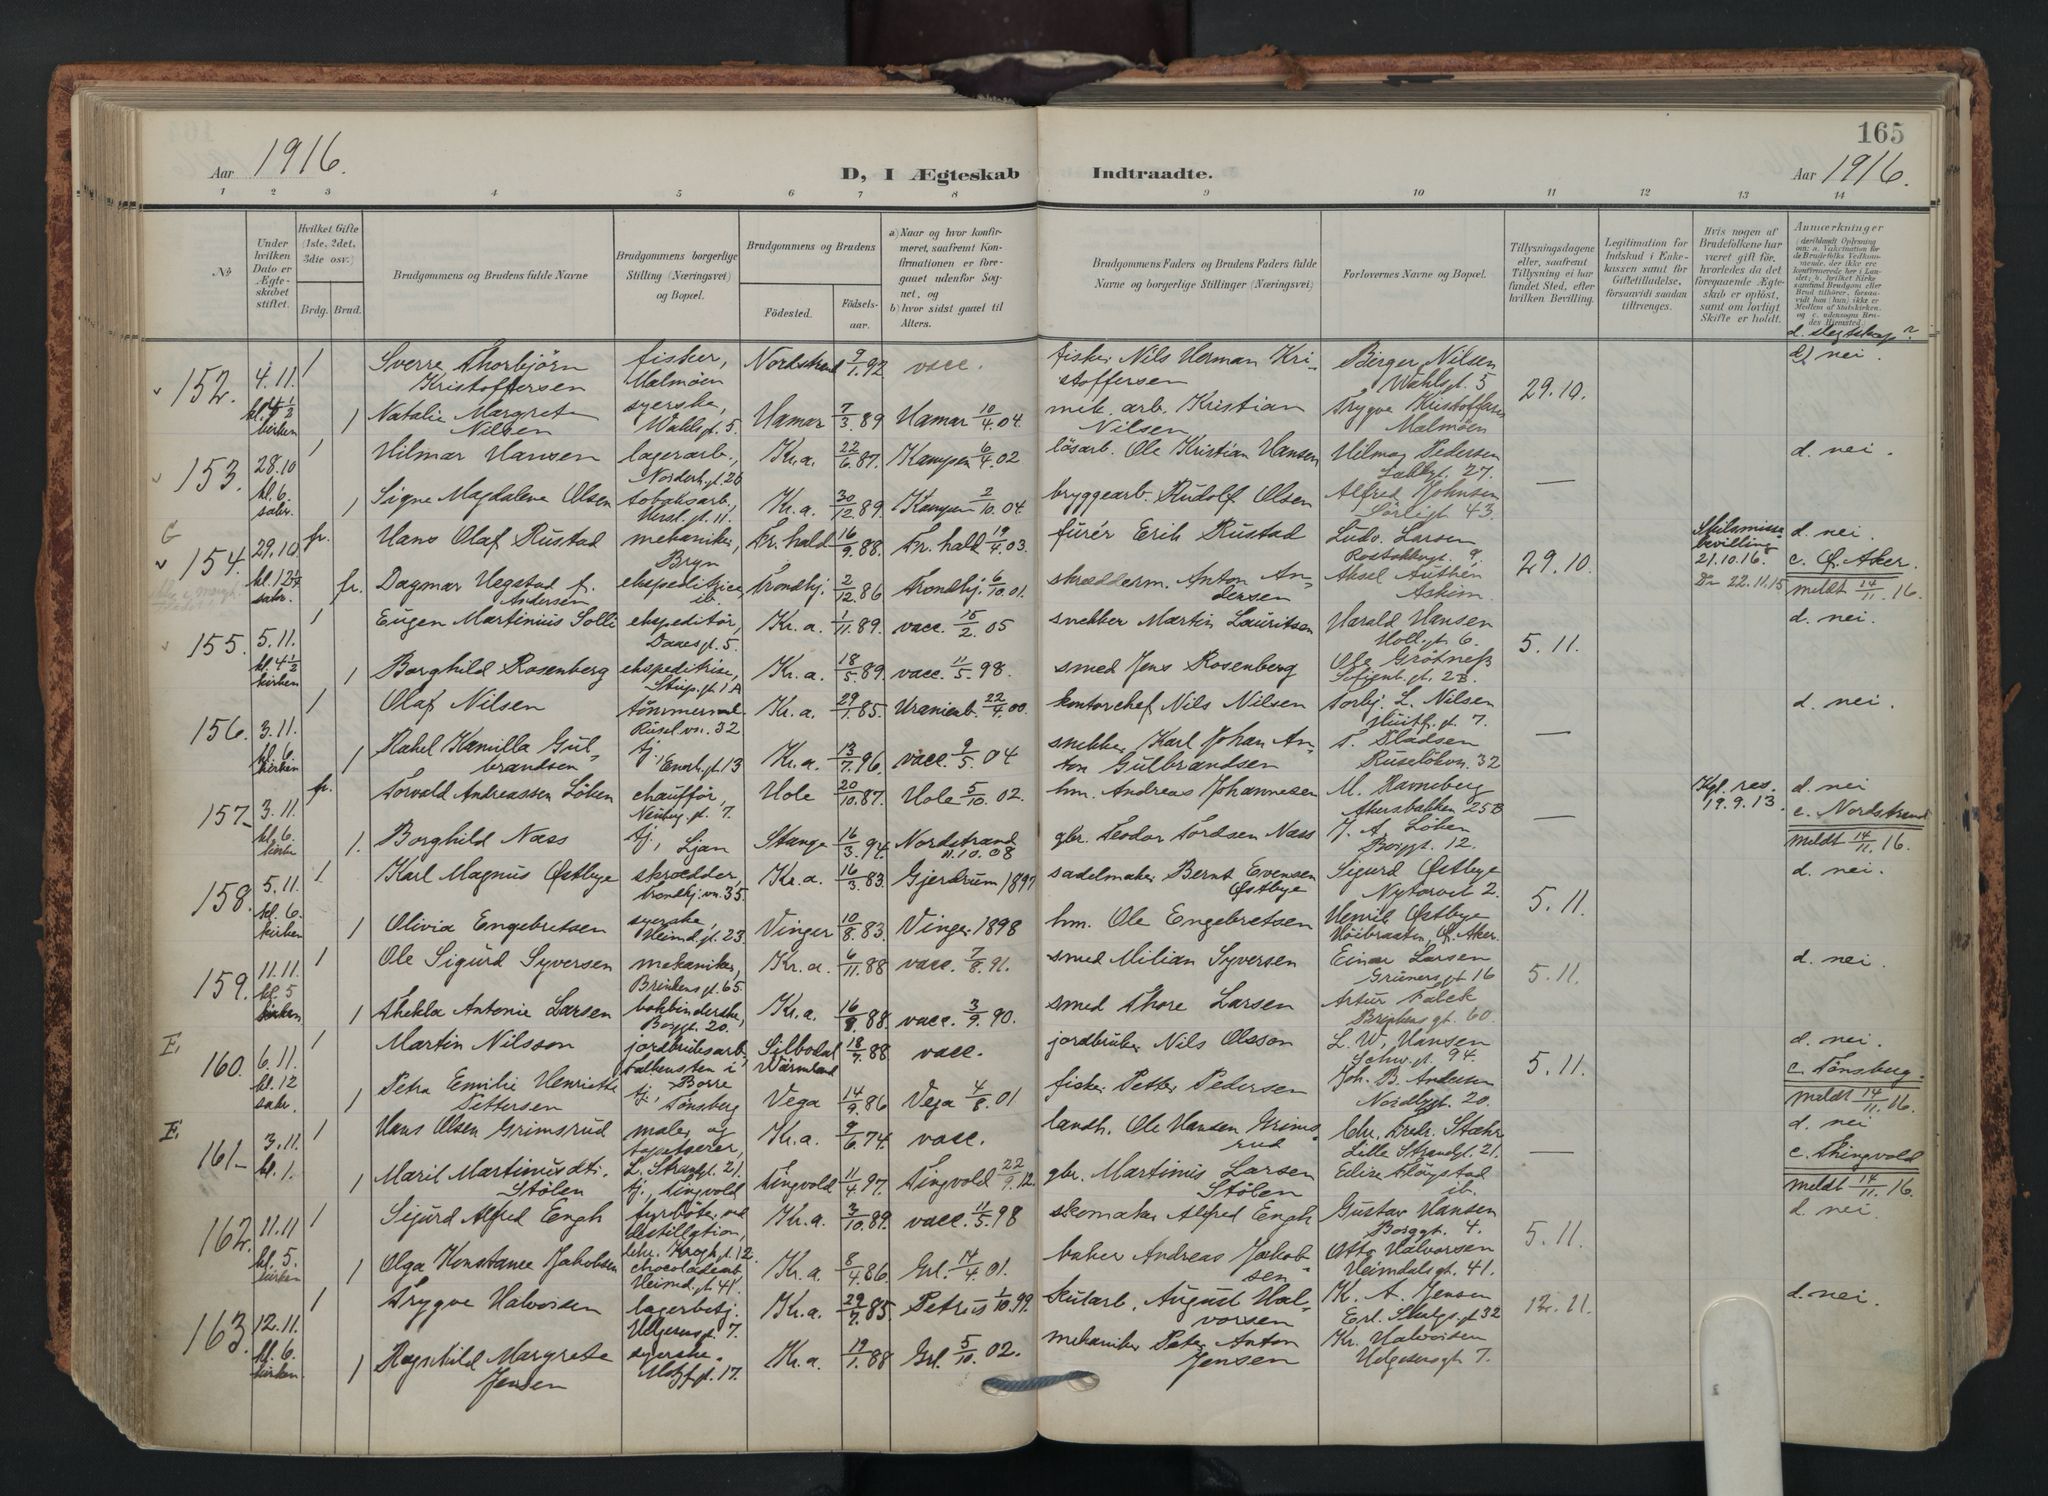 165
Aar 1916.
D, I Ægteskab Indtraadte.
Aar 1916.
1 2 3 4 5 6 7 8 9 10 11 12 13 14
No
Under hvilken Dato er Ægteskabet stiftet.
Hvilket Gifte (1ste, 2det, 3die osv.)
Brdg. Brud.
Brudgommens og Brudens fulde Navne
Brudgommens borgerlige Stilling (Næringsvei) og Bopæl.
Brudgommens og Brudens
Födested. Födselsaar.
a) Naar og hvor konfirmeret, saafremt Konfirmationen er foregaaet udenfor Sognet, og
b) hvor sidst gaaet til Alters.
Brudgommens Faders og Brudens Faders fulde Navne og borgerlige Stillinger (Næringsvei)
Forlovernes Navne og Bopæl.
Tillysningsdagene eller, saafremt Tillysning ei har fundet Sted, efter hvilken Bevilling.
Legitimation for Indskud i Enkekassen samt for Giftetilladelse, forsaavidt saadan tiltrænges.
Hvis nogen af Brudefolkene har været gift för, hvorledes da det foregaaende Ægteskab er oplöst, samt om lovligt Skifte er holdt.
Anmærkninger
d. slegtskap?
152. 4.11. 1 Sverre Thorbjörn fisker, Nordstrand 9/1.92 vacc. fisker Nils Herman Kri- Birger Nilsen d) nei.
Kristoffersen Malmöen stoffersen Wahlsgt. 5 29.10.
kirken 1 Natalie Margrete syerske, Hamar 7/3.89 Hamar 10/4.04 mek. arb. Kristian Trygve Kristoffersen
Nilsen Wahlsgt. 5. Nilsen Malmöen
153. 28.10 1 Hilmar Hansen lagerarb., Kr.a. 22/6.87. Kampen 6/4.02 lösarb. Ole Kristian Hansen Hilmar Pedersen d. nei.
27.
kl. 6. sakr. 1 Signe Magdalene Olsen tobaksarb. Kr.a. 30/12.89. Kampen 2/10.04 bryggearb. Rudolf Olsen Alfred Johnsen —
Sörligt 43.
G
154. 29.10 fr. Hans Olaf Rustad mekaniker, Fr.hald 16/9.88. Fr.hald 19/4.03. furér Erik Rustad Ludv. Larsen bevilling d. nei
Bryn 29.10. 21.10.16. c. Ø. Aker.
sakr. fr. Dagmar Hegstad f. ekspeditrice Trondhj. 2/12.86 Trondhj. 6/10.01. skrædderm. Anton An- Aksel Authén 22.11.15 meldt 14/11.16.
Andersen ib. dersen Askim.
155. 5.11. 1 Eugen Martinius Solli ekspeditör, Kr.a. 1/11.89. vacc. 15/2.05 snekker Martin Lauritsen Harald Hansen d. nei.
Daaesgt. 5. Holl.gt. 6. 5.11.
kl. 4½ kirken 1 Borghild Rosenberg ekspeditrise, Kr.a. 18/5.89. vacc. 11/5.98. smed Jens Rosenberg Ole Grötneß
Stup.gt. 1A Sofienb.gt. 2B.
156. 3.11. 1 Olaf Nilsen Kr.a. 29/1.85. Uranienb. 22/4.00. kontorchef Nils Nilsen Torbj. L. Nilsen d. nei.
32 Huitf.gt. 7.
kl. 6. kirken 1 Rakel Kamilla Gul- tj. Kr.a. 13/7.96. vacc. 9/5.04 snekker Karl Johan An- T. Pladsen —
brandsen ton Gulbrandsen Ruselökvn. 32
157. 3.11. fr. Torvald Andreassen Löken chaufför, Hole 20/10.87. Hole 5/10.02. hm. Andreas Johannesen M. Ravneberg Kgl. res. d. nei
Akersbakken 25B 19.9.13. c. Nordstrand
kl. 6. kirken 1. Borghild Næss tj., Ljan Stange 16/3.94. Nordstrand gbr. Teodor Tordsen Næss J. A. Löken — meldt 14/11.16.
11.10.08 Borggt. 12.
158. 5.11. 1 Karl Magnus Østbye skrædder, Kr.a. 16/3.83. Gjerdrum 1897 sadelmaker Bernt Evensen Sigurd Østbye d. nei.
Trondhj.vn. 35. Østbye Nytorvet 2.
kl. 6. kirken 1 Olivia Engebretsen syerske, Vinger 10/8.83. Vinger 1898 hm. Ole Engebretsen Henrik Østbye 5.11.
Heimd.gt. 23. Höibraaten, Ø. Aker.
159. 11.11. 1 Ole Sigurd Syversen mekaniker, Kr.a. 6/11.88 vacc. 7/8.91. smed Milian Syversen Einar Larsen d. nei.
Brinkens gt. 65 Grünersgt 16 5.11.
kl. 5 kirken 1 Thekla Antonie Larsen bokbinderske, Kr.a. 88. vacc. 3/9.90. smed Thore Larsen Artur Falck
Borggt. 20. 60.
E.
160. 6.11. 1 Martin Nilsson jordbruksarb. Silbodal 18/7.88 vacc. jordbruker Nils Olsson L. W. Hansen d. nei.
Falkensten i Borre Wärmland Schw.gt. 94. c. Tönsberg.
kl. 12 sakr. 1 Petra Emilie Henriette tj., Tönsberg Vega 14/9.86 Vega 4/8.01 fisker Petter Pedersen Joh. B. Andersen 5.11. meldt 14/11.16.
Pettersen Nordbygt. 20.
E.
161. 3.11. 1 Hans Olsen Grimsrud maler og Kr.a. 9/6.74. vacc. landh. Ole Hansen Grims- Chr. Fredr. Stæhr d. nei
tapetserer, rud Lille Strandgt. 21. c. Thingvold
kl. 1. L. Strandgt. 21.
1 Maril Martinusdtr. tj., Tingvold Tingvold 11/4.97. Tingvold 22/9.12. gbr. Martinus Larsen — meldt 14/11.16.
Stölen Stölen ib.
162. 11.11 1 Sigurd Alfred Engh fyrböter ved Kr.a. 3/10.89. vacc. 11/5.98 skomaker Alfred Engh Gustav Hansen d. nei.
destillation, Borggt. 4. 5.11.
Chr. Krogh.gt. 12.
kl. 5. kirken 1 Olga Konstance Jakobsen chocoladearb. Kr.a. 8/4.86. Grl. 14/4.01. baker Andreas Jakob- Otto Halvorsen
Heimd.gt. 41. sen Heimdalsgt. 41.
163. 12.11. 1 Trygve Halvorsen lagerbetj. Kr.a. 29/7.85. Petrus 1/10.99. skutarb. August Hal- K. A. Jensen d. nei.
Helgesensgt. 7. vorsen 32 12.11.
kl. 6. kirken 1 Ragnhild Margrete syerske. Kr.a. 19/1.88 Grl. 5/10.02. mekaniker Peter Anton Kr. Halvorsen
Jensen 17. Jensen Helgesensgt 7.